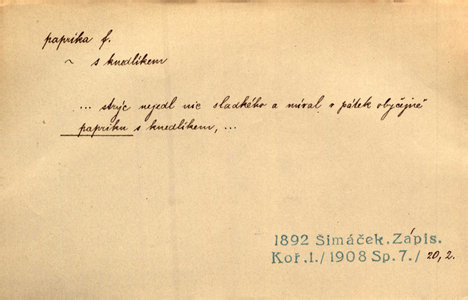 paprika f.
~ s knedlíkem
... strýc nejedl nic sladkého a míval v pátek obyčejně
papriku s knedlíkem, ...
1892 Šimáček. Zápis.
Koř. 1./1908 Sp. 7./ 20, 2.